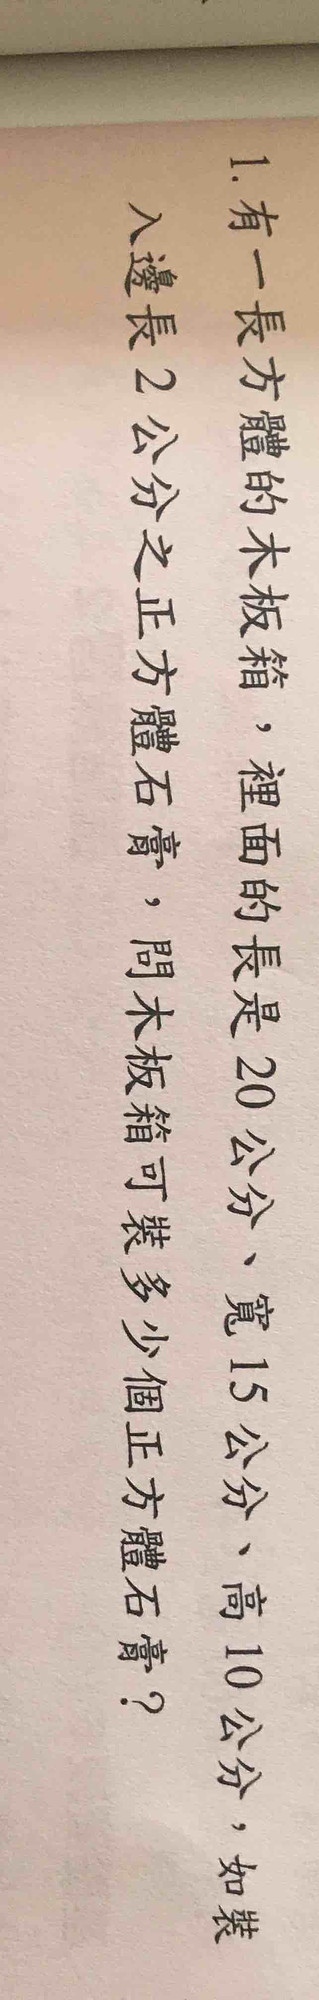 1. 有一長方體的木板箱，裡面的長是 20 公分、寬 15 公分、高 10 公分，如裝
入邊長 2 公分之正方體石膏，問木板箱可裝多少個正方體石膏？